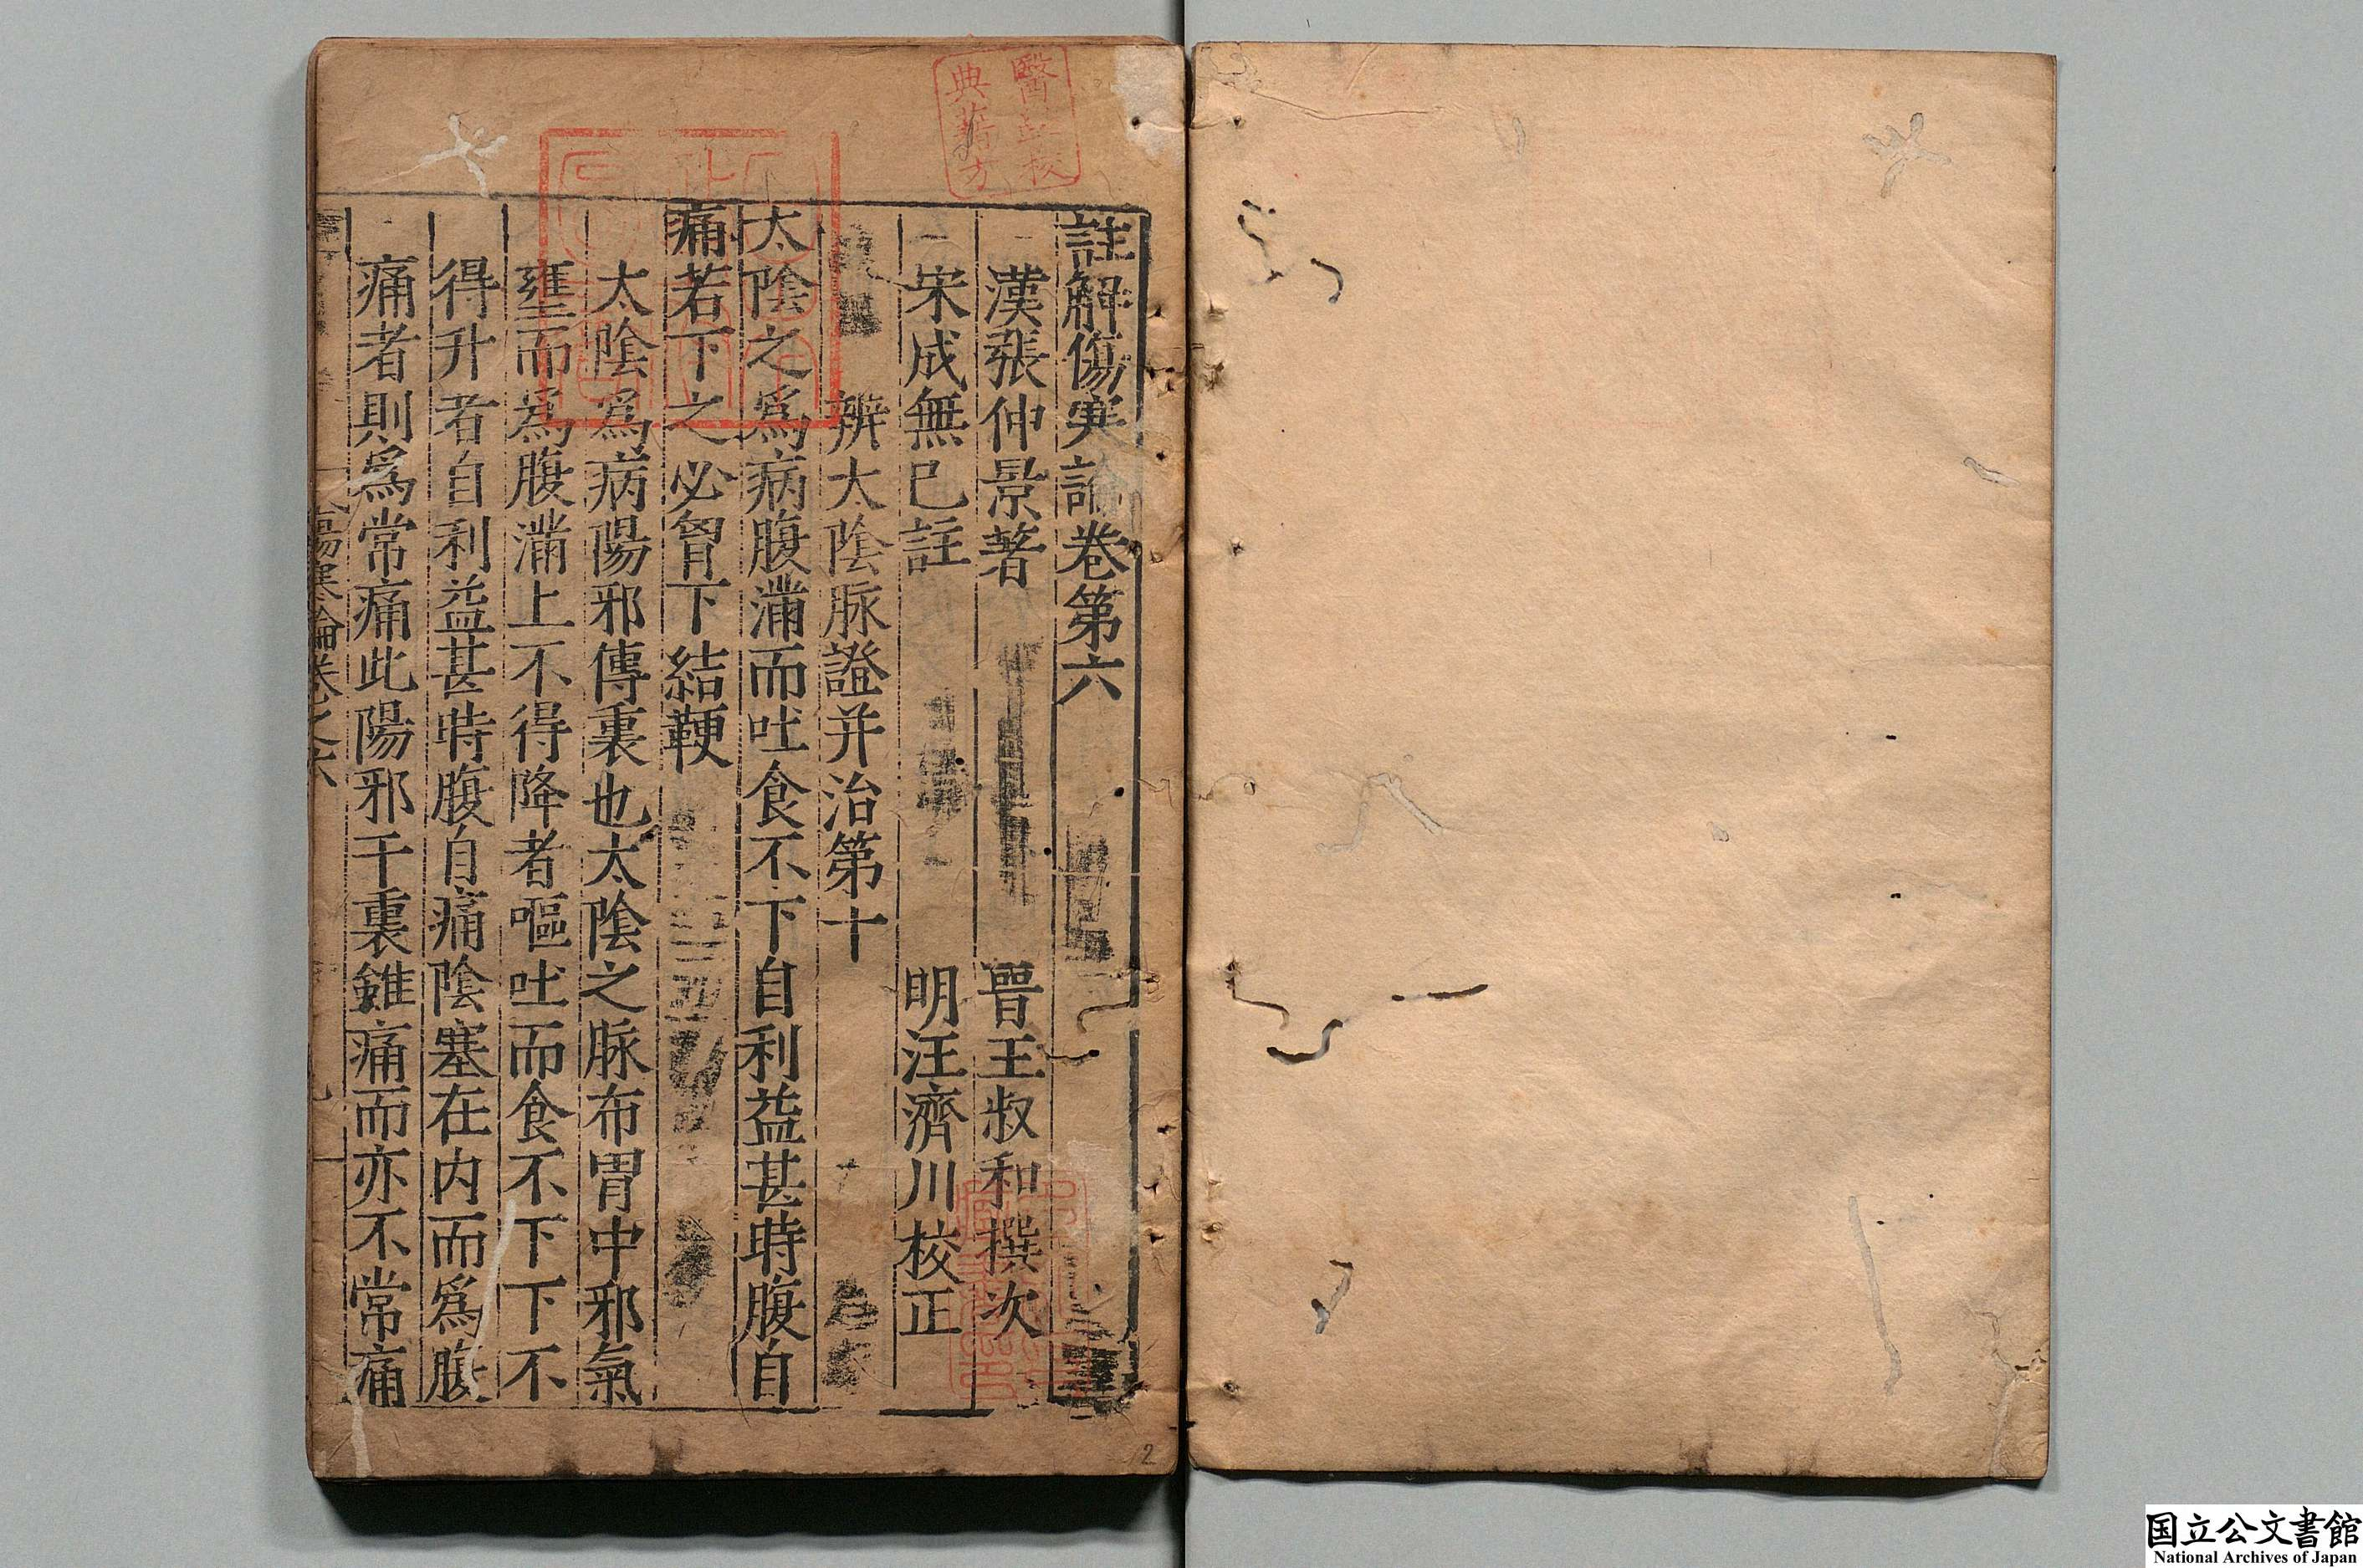 註解傷寒論卷第六
漢張仲景著 晉王叔和撰次
宋成無已註 明汪濟川校正
辨太陰脉證并治第十
太陰之爲病腹滿而吐食不下自利益甚時腹自
痛若下之必胷下結鞕
太陰爲病陽邪傳裏也太陰之脉布胃中邪氣
壅而爲腹滿上不得降者嘔吐而食不下下不
得升者自利益甚時腹自痛陰塞在内而爲腹
痛者則爲常痛此陽邪干裏雖痛而亦不常痛
傷寒論卷之六
2
国立公文書館
National Archives of Japan